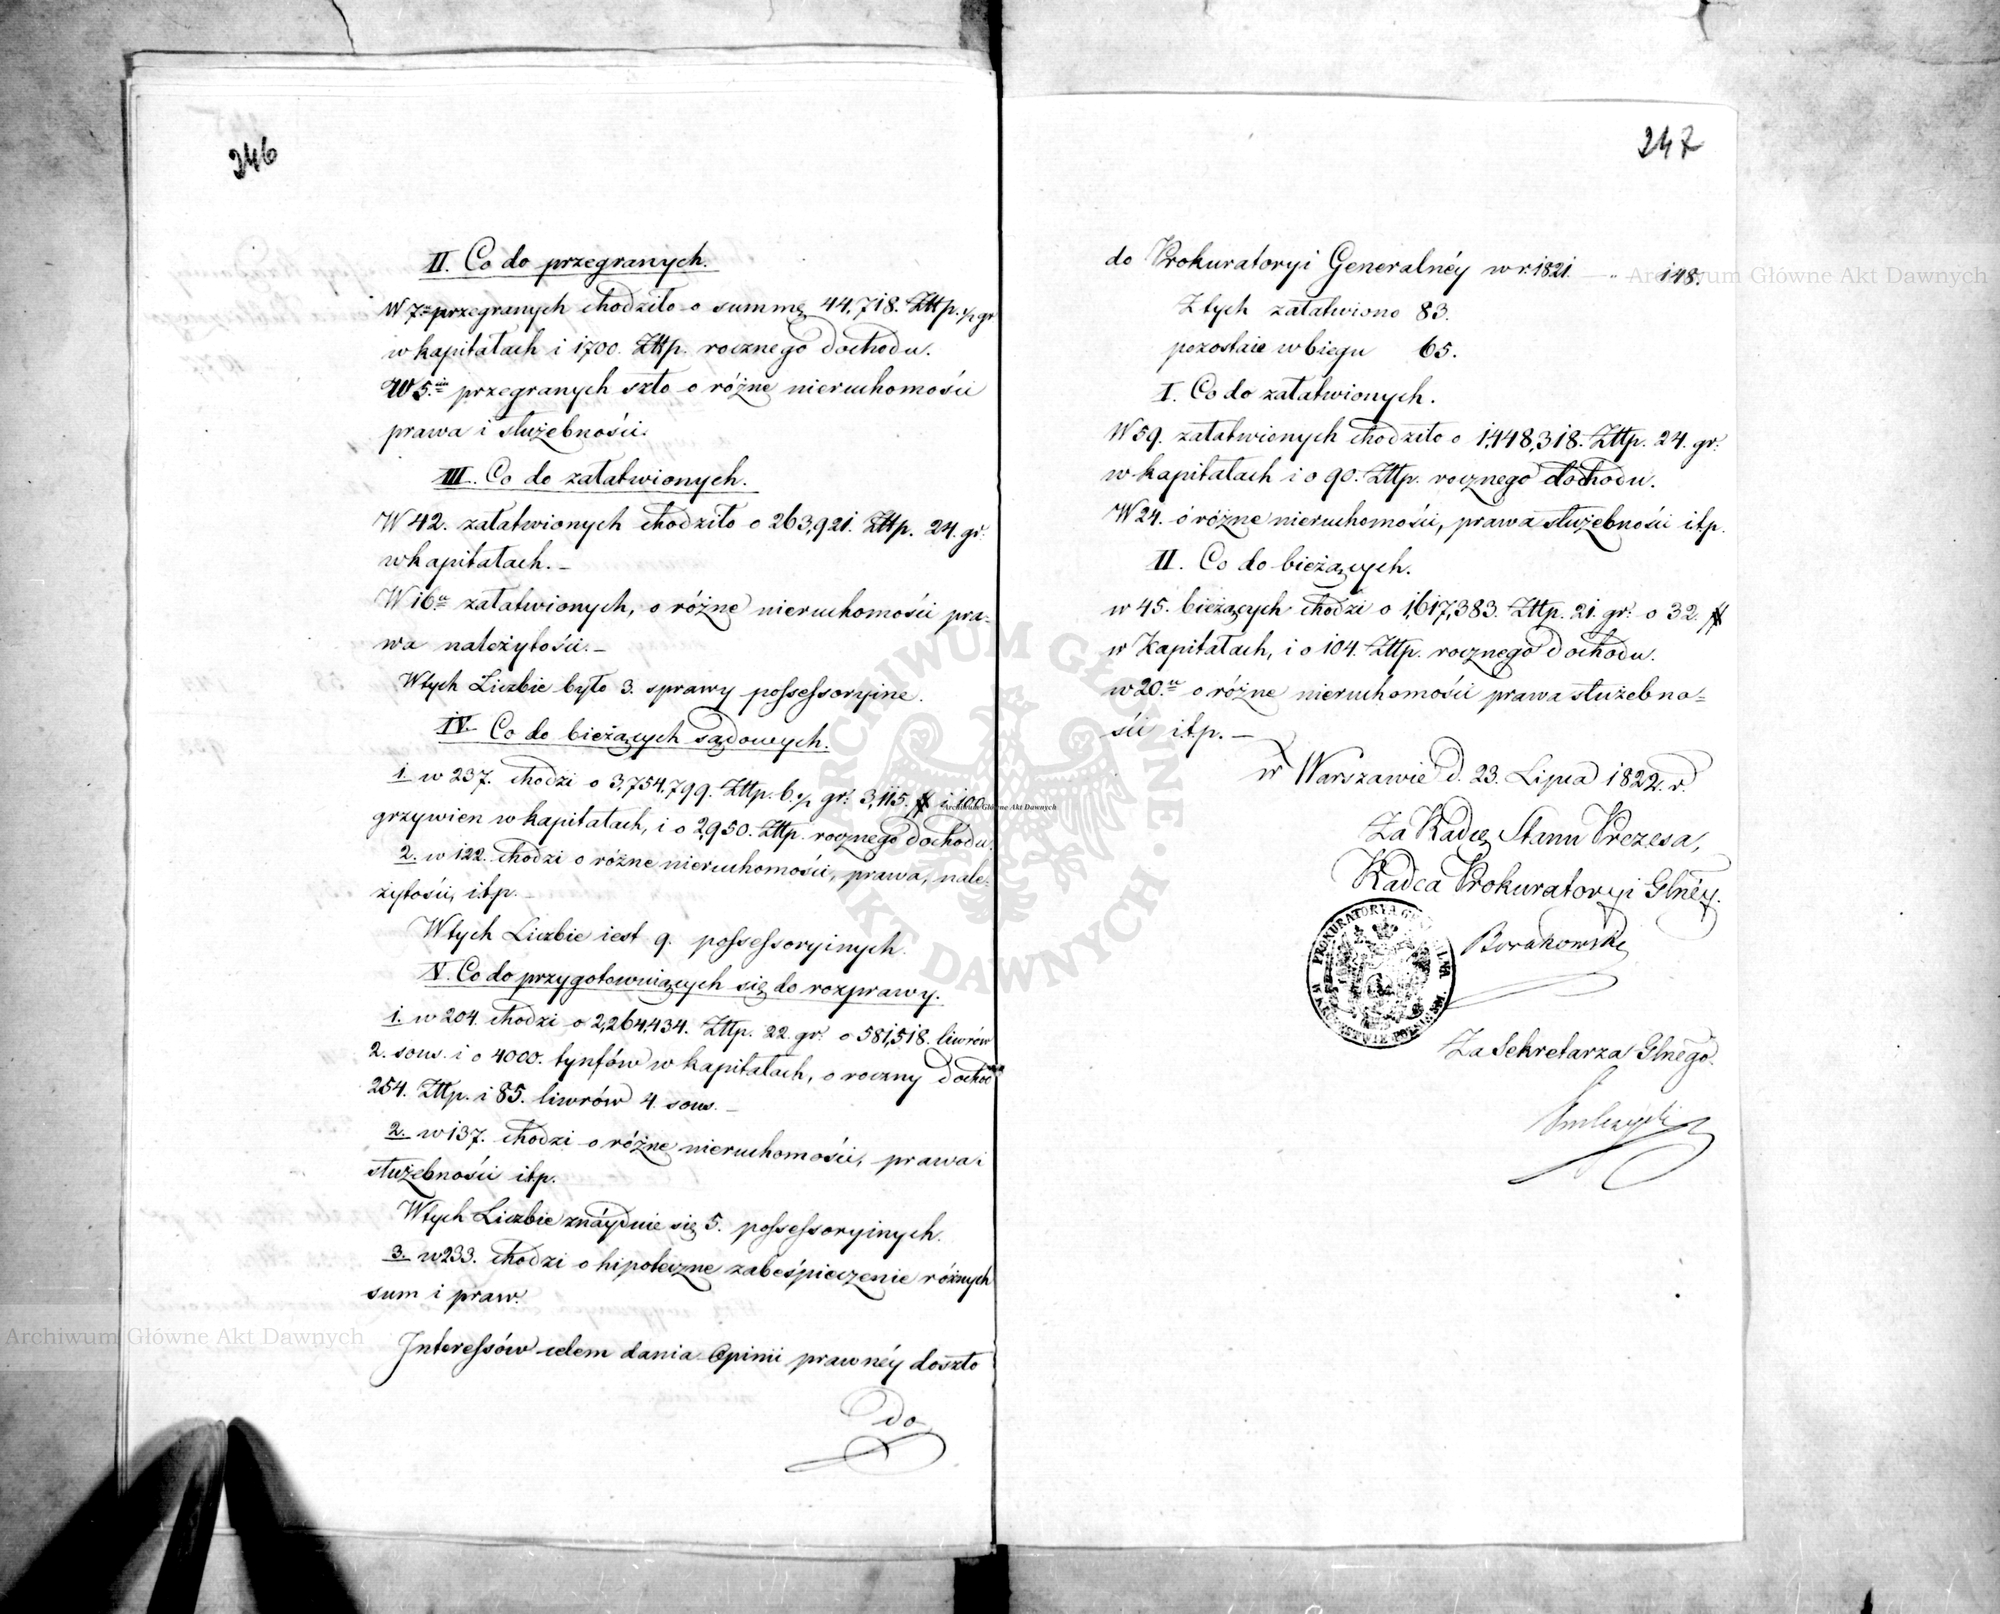 246
II. Co do przegranych.
W 7miu przegranych chodziło o summę 44,718. Złtp. ½ gr
w kapitałach i 1700. Złtp. rocznego dochodu.
W 5.ciu przegranych szło o różne nieruchomości
prawa i służebności.
III. Co do załatwionych.
W 42. załatwionych chodziło o 263,921. Złtp. 24. gr.
w kapitałach. –
W 16u załatwionych, o różne nieruchomości pra=
wa należytości. –
W tych Liczbie było 3. sprawy possessoryine.
IV. Co do bieżących sądowych.
1. w 237. chodzi o 3,754,799. Złtp. 6.½ gr. 3,115. # i 100
grzywien w kapitałach, i o 2,950. Złtp. rocznego dochodu.
2. w 122. chodzi o różne nieruchomości, prawa, nale=
żytości, itp. –
W tych Liczbie iest 9. possessoryinych.
V. Co do przygotowuiących się do rozprawy.
1. w 204. chodzi o 2,264,434. Złtp. 22. gr. o 581,518. liwrów
2. sous. i o 4000. tynfów w kapitałach, o roczny dochód
254. Złtp. i 85. liwrów 4. sous. –
2. w 137. chodzi o różne nieruchomości, prawa i
służebności itp.
W tych Liczbie znáyduie się 5. possessoryinych.
3. w 233. chodzi o hipoteczne zabeśpieczenie różnych
sum i praw.
Interessów celem dania Opinii prawnéy doszło
do
247
do Prokuratoryi Generalnéy w r. 1821. — „ 148.
Z tych załatwiono 83.
pozostaie w biegu 65.
I. Co do załatwionych.
W 59. załatwionych chodziło o 1,448,318. Złtp. 24. gr.
w kapitałach i o 90. Złtp. rocznego dochodu.
W 24. o różne nieruchomości, prawa służebności itp.
II. Co do bieżących.
w 45. bieżących chodzi o 1,617,383. Złtp. 21. gr. o 32. #
w Kapitałach, i o 104. Złtp. rocznego dochodu.
w 20.u o różne nieruchomości prawa służebno=
ści itp. —
w Warszawie d. 23. Lipca 1822. r.
Za Radcę Stanu Prezesa,
Radca Prokuratoryi Glnéy.
Za Sekretarza Glnego.
Archiwum Główne Akt Dawnych
Archiwum Główne Akt Dawnych
Archiwum Główne Akt Dawnych
ARCHIWUM GŁÓWNE AKT DAWNYCH